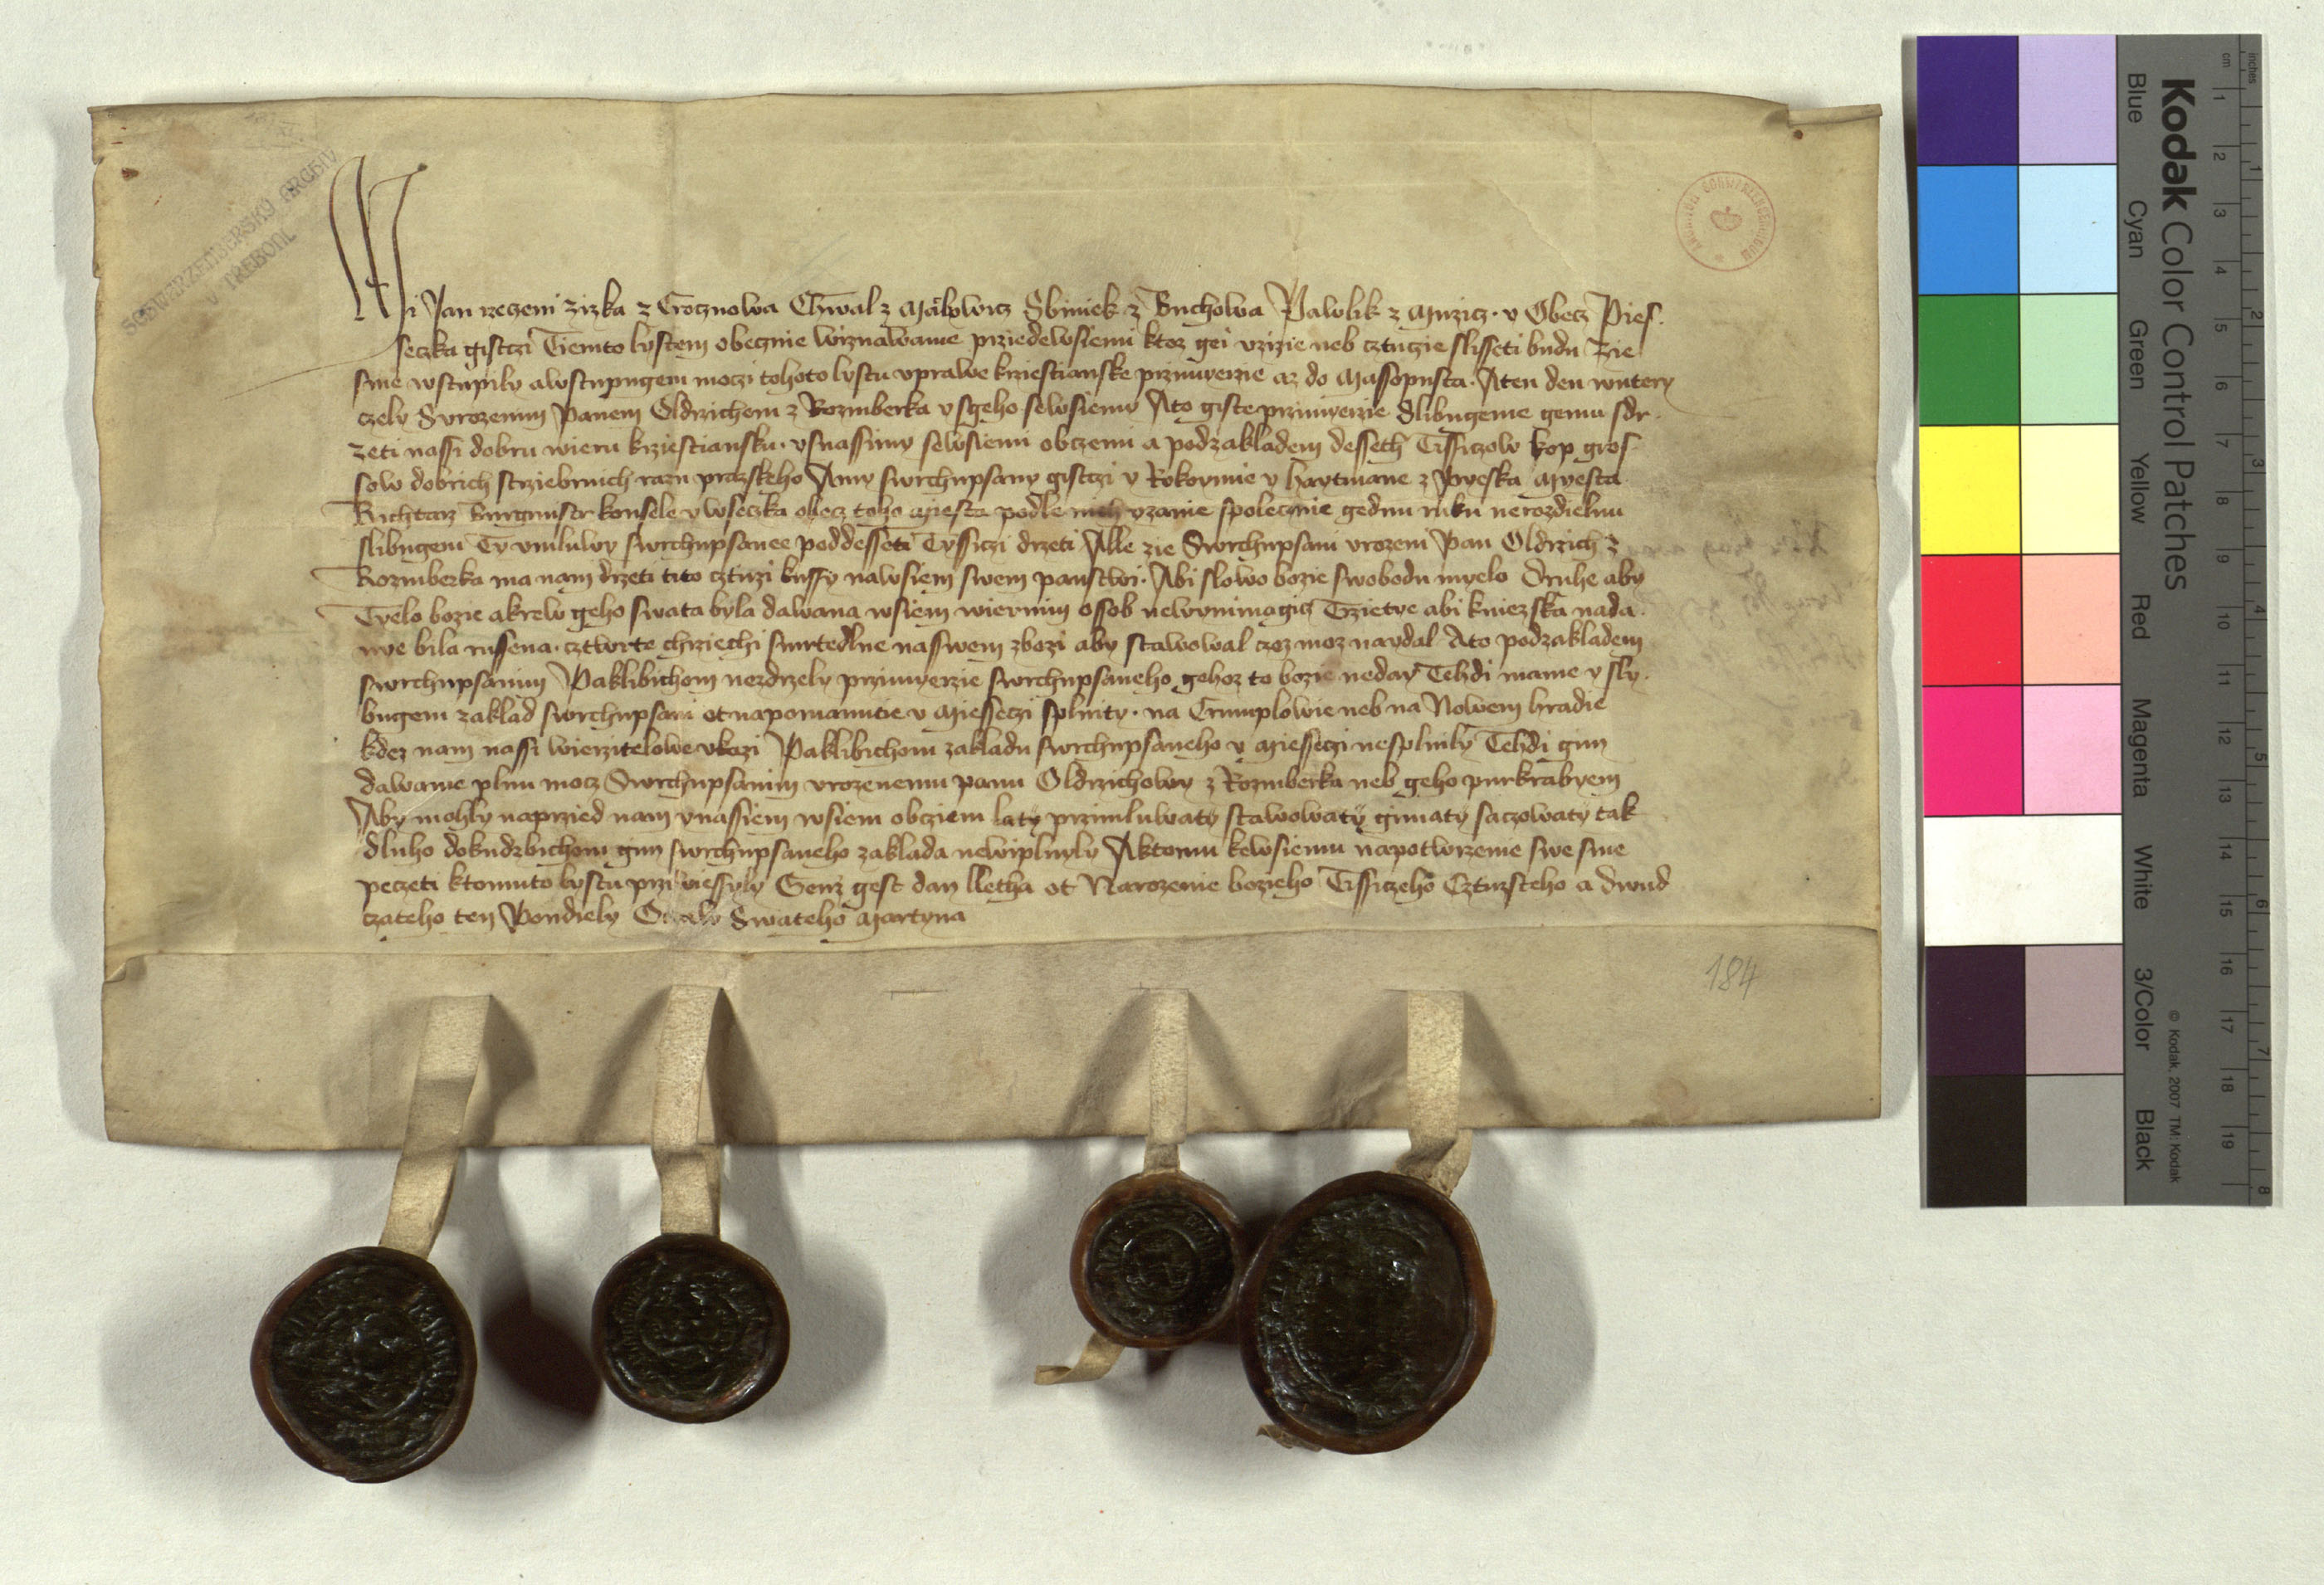 SCHWARZENBERSKÝ ARCHIV
V TŘEBONI
Mi Jan rzeczeni zizka z Trocznowa Chwal z Malowicz Sbiniek z Buchowa Pawlik z Muzicz · y Obecz Pies
seczka gistczi Tiemto lystem obecznie wiznawame prziedewssiemi ktoz gei vzizie neb cztuczie slisseti budu Zie
sme wstupily awstupugem moczi tohoto lystu vprawe krziestianske przimyerzie az do Massopusta · Aten den wutery
czely Surozenim Panem Oldrzichem z Rozmberka ysgeho sewssiemy Ato giste przimyerzie Slibugeme gemu sdr
zeti nassi dobru wieru krziestiansku · ysnassimy sewssiemi obczemi a podzakladem desseth Tissiczow kop gros
sow dobrich strziebrnich razu prazskeho Amy swrchupsany gistczi y Rokoymie y hartmane z Pyeska Myesta
Richtarz Burgmistr konsele y wseczka obecz toho Miesta podle nich vzanie spolecznie gednu ruku nerozdielnu
slibugem Ty vmluwy swrchupsanee poddesseti Tyssiczi drzeti Alle zie Swrchupsani vrozeni Pan Oldrzich z
Rozmberka ma nam drzeti tito cztirzi kussy nawsiem swem panstwi · Abi slowo bozie swobodu myelo Druhe aby
Tyelo bozie akrew geho swata byla dawana wsiem wiernim ossob newynimagicz Trzietye abi kniezska nada
nye bila russena · cztwrte chrziechi smrtedlne naswem zbozi aby stawowal czoz moz naydal Ato podzakladem
swrchupsanim Paklibichom nezdrzely przimyerzie swrchupsaneho gehoz to bozie neday Tehdi mame y sly
bugem zaklad swrchupsani ot napomanutie v Miesseczi splnity · na Crumplowie neb na Nowem hradie
kdez nam nassi wierzitelowe vkazi Paklibichom zakladu swrchupsaneho v Miesseczi nesplnily Tehdi gim
dawame plnu mocz Swrchupsanim vrozenemu panu Oldrzichowy z Rozmberka neb geho purkrabyem
Aby mohly naprzied nam ynassiem wsiem obcziem laty przimluwaty stawowaty gimaty saczowaty tak
dluho dokudzbichom gim swrchupsaneho zaklada newiplnyly Aktomu kewssiemu napotwrzenie swe sme
peczeti ktomuto lystu przi wiessyly Genz gest dan lletha ot Narozenie bozieho Tissiczeho Cztirzsteho a dwud
czateho ten Pondiely Swateho Martyna
184
Kodak Color Control Patches
Blue Cyan Green Yellow Red Magenta White 3/Color Black
© Kodak, 2007 TM: Kodak
inches 1 2 3 4 5 6 7 8
cm 1 2 3 4 5 6 7 8 9 10 11 12 13 14 15 16 17 18 19